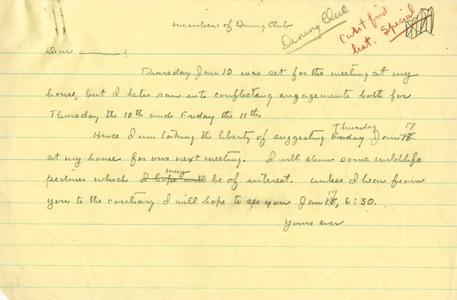 members of Dining Club
Dining Club
Can't find
list. Special
Dear ———:
Thursday Jan 10 was set for the meeting at my
house, but I later ran into conflicting engagements both for
Thursday, the 10th and Friday the 11th.
Hence I am taking the liberty of suggesting Friday Thursday Jan 18 17
at my house for our next meeting. I will show some wildlife
pictures which I hope will may be of interest. unless I hear from
you to the contrary I will hope to see you Jan 18 17, 6:30.
Yours ever